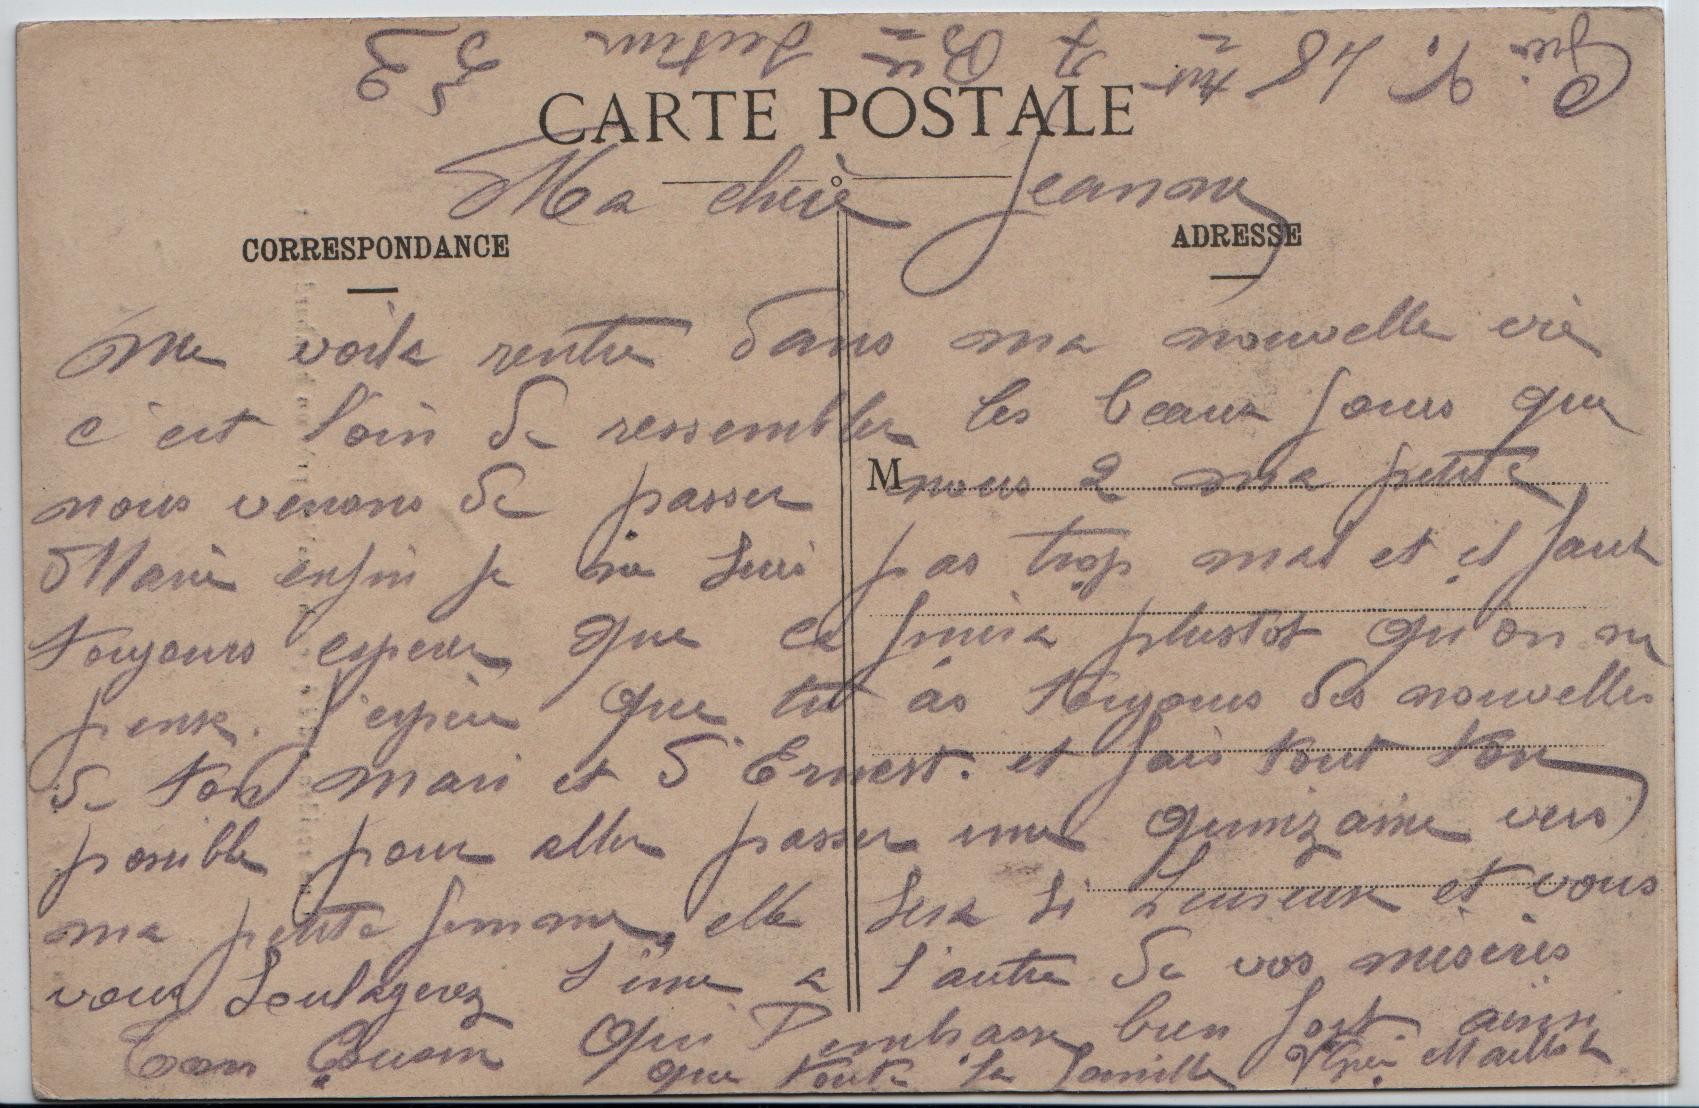 CARTE POSTALE
Ma chère Jeanne
CORRESPONDANCE
ADRESSE
Me voila rentre dans ma nouvelle vie
c'est loin de ressembler les beaux jours que
nous venons de passer nous 2 ma petite
M
Marie enfin je ne suis pas trop mal et il faut
toujours esperer que ca finira plustot qu'on ne
pense. J'espère que tu as toujours des nouvelles
de ton mari et d'Ernest. et fais tout ton
possible pour aller passer une quinzaine vers
ma petite femme, elle sera si heureuse et vous
vous soulagerez l'une a l'autre de vos miseres
Ton Cousin qui t'embrasse bien fort ainsi
que toute la famille Maillot
18 7 Bie Secteur 53